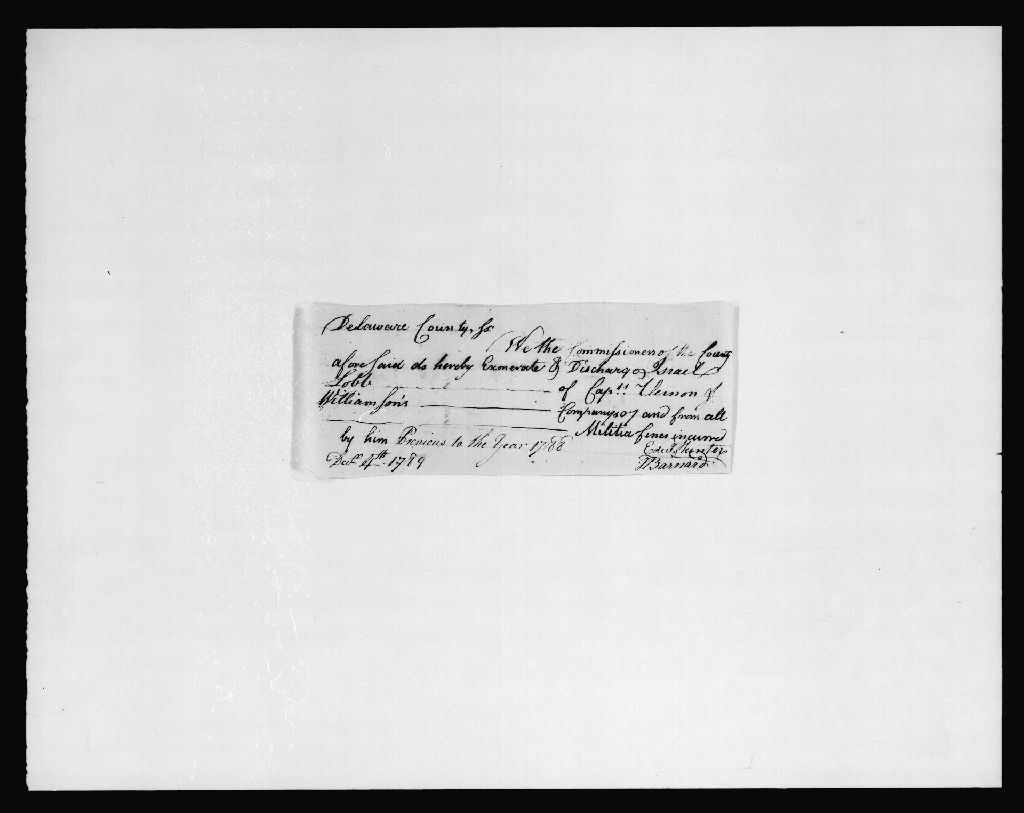 Delaware County, ss
We the Commissioners of the County
aforesaid do hereby Exonerate & Discharge Israel
Lobb of Capts. Vernon &
Williamson's Companys of and from all
Militia fines incurred
by him Previous to the Year 1788
Edwd Hunter
Decr 4th 1789
Barnard